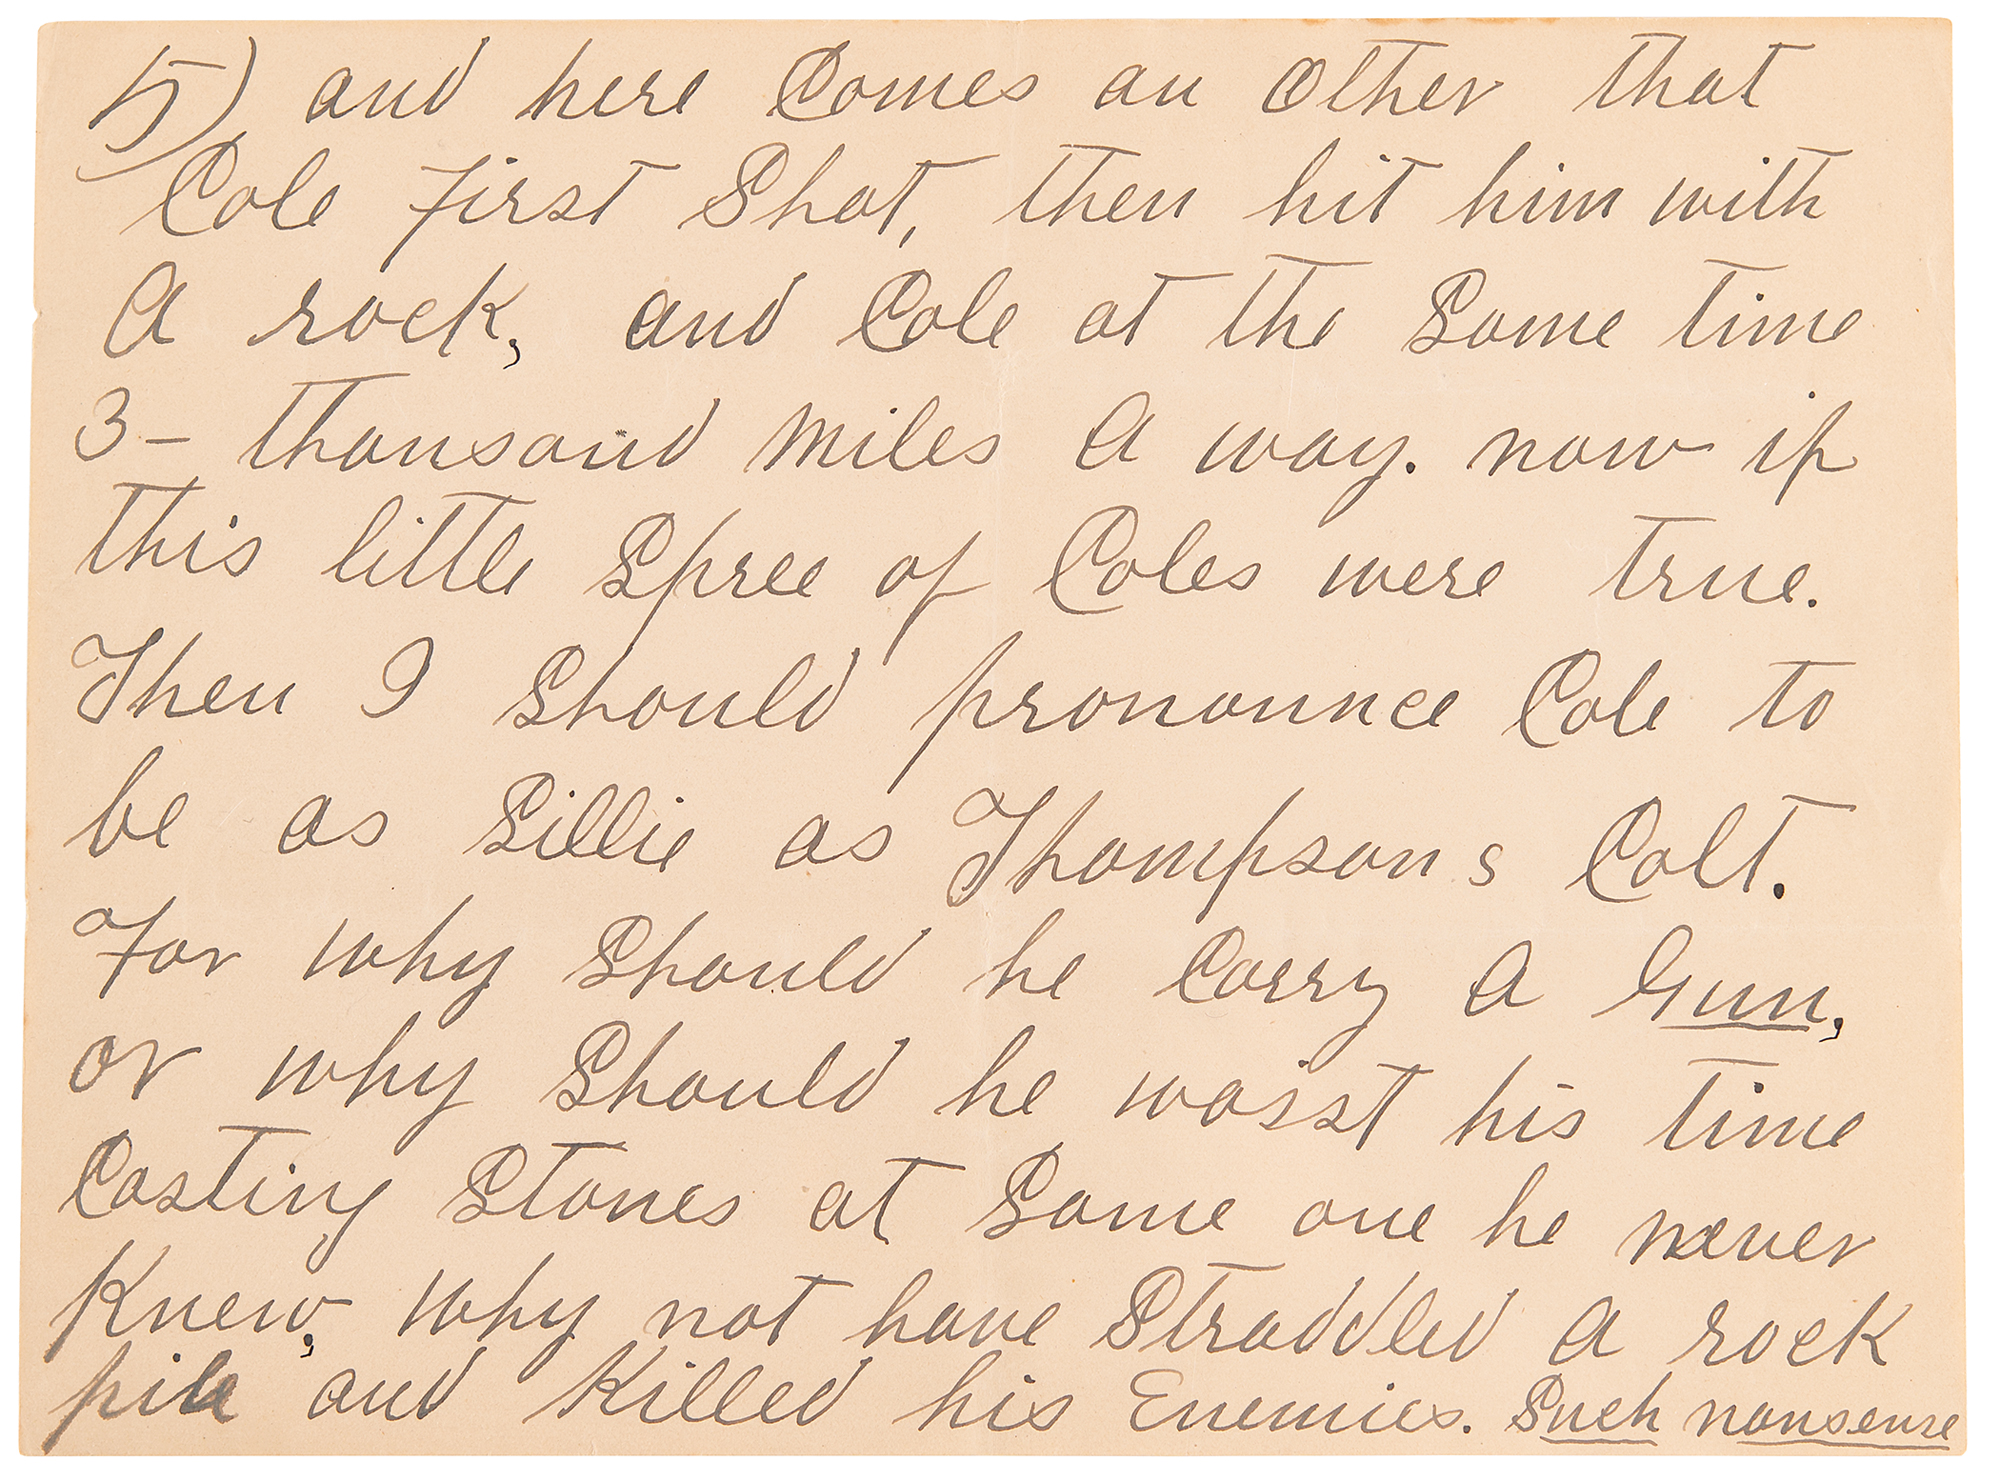 5) and here Comes an Other that
Cole first Shot, then hit him with
A rock, and Cole at the Same time
3- thousand miles A way. now if
this little Spree of Coles were true.
Then I Should pronounce Cole to
be as Sillie as Thompson s Colt.
For why Should he Carry A Gun,
or why Should he wasst his time
Casting Stones at Some one he never
Knew, why not have Straddled A rock
pile and Killed his Enemies. Such nonsense